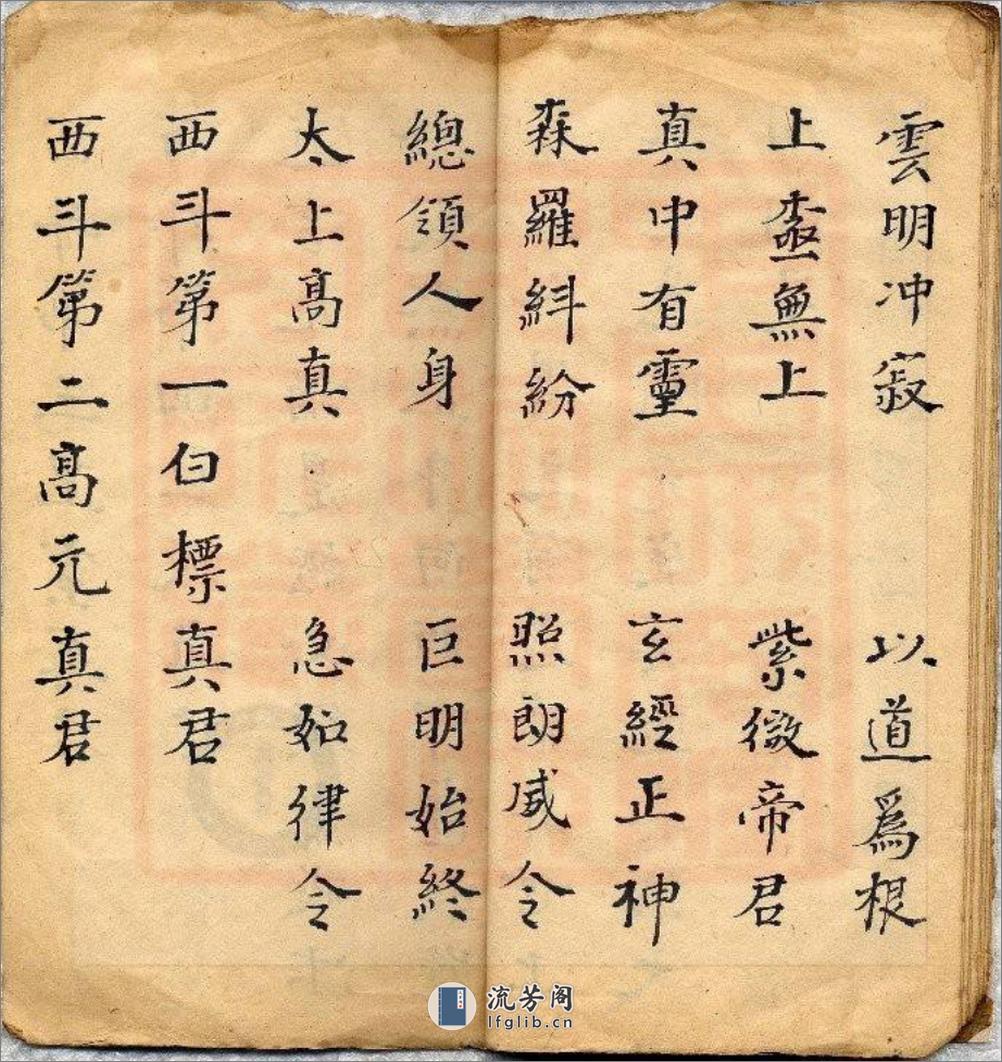 雲明冲寂 以道爲根
上 無上 紫微帝君
真中有靈 玄經正神
森羅糾紛 照朗威令
總領人身 巨明始終
太上高真 急如律令
西斗第一白標真君
西斗第二高元真君
流芳阁
lfglib.cn